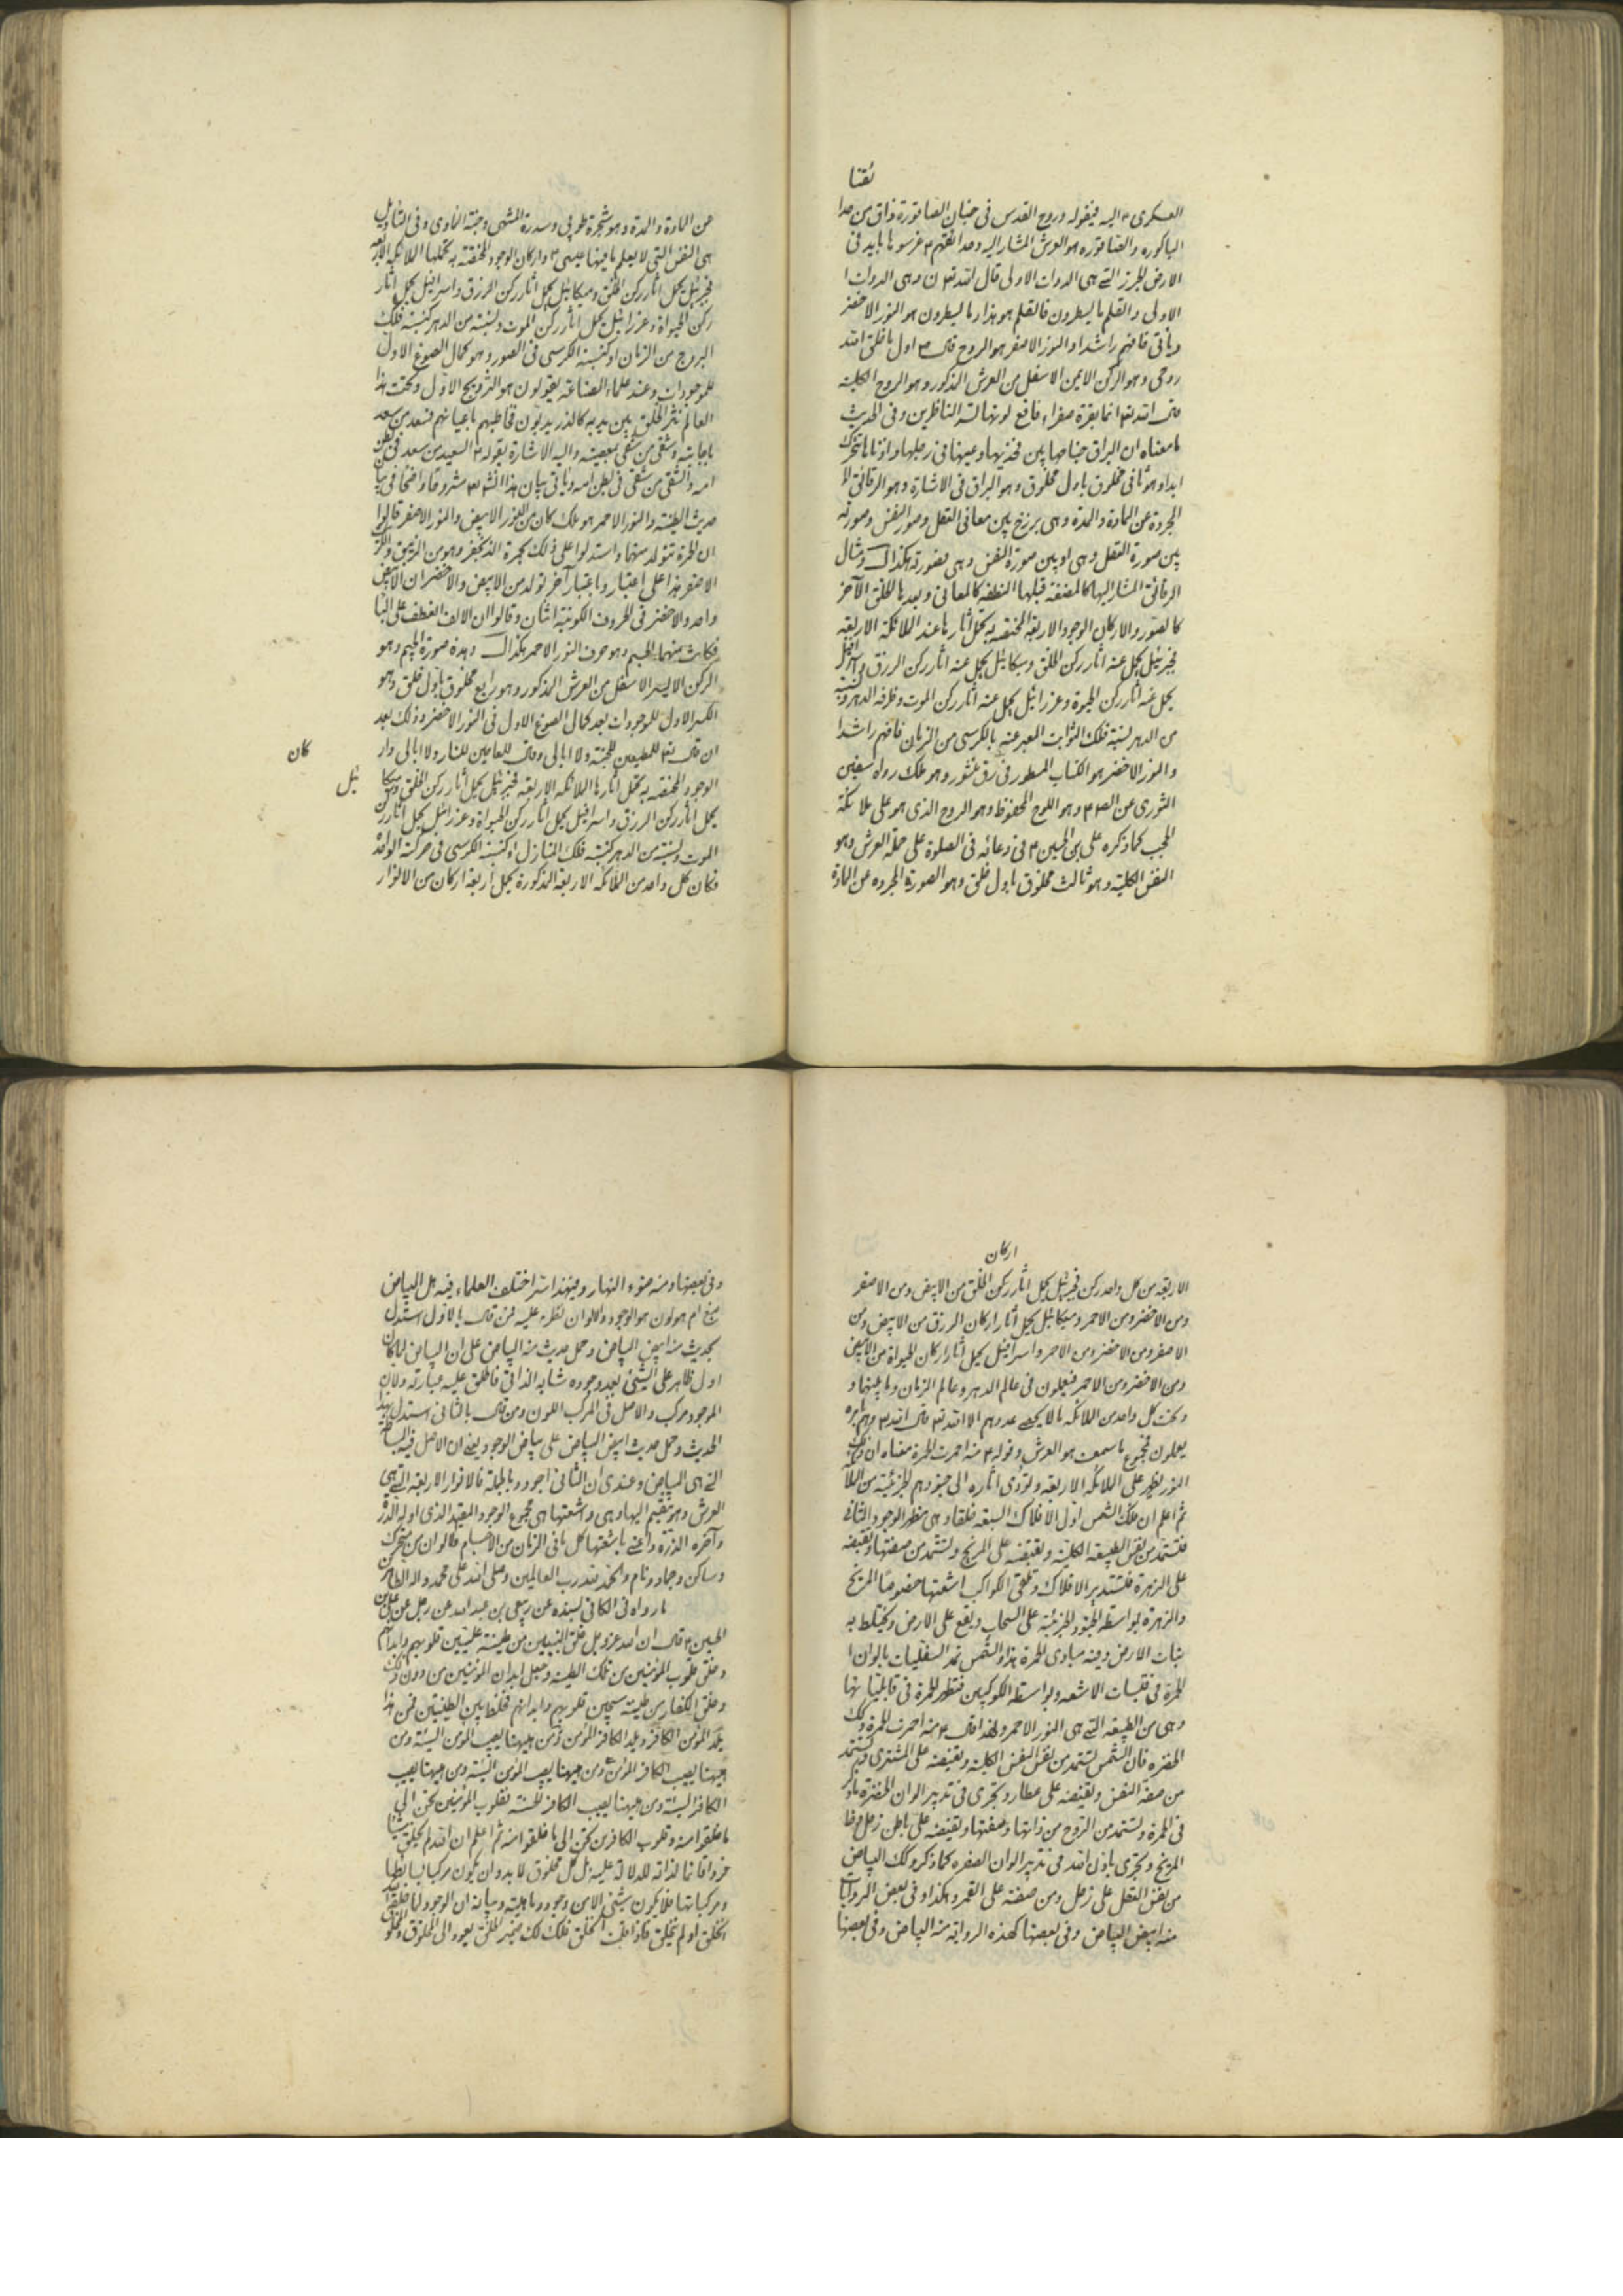 ئقنا
العسكرى ع اليه فيقوله و روح القدس فى جنان الصاقورة ذاق من حدا
الباكورة و الصاقوره هو العرش المشار اليه و حدائقهم ع غرسوها بايد فى
الارض الجرز التے هى الدوات الاولى قال الله تع ن وهى الدوات ا
الاولى و القلم و ما يسطرون فالقلم هو هذا و ما يسطرون هو النور الاخضر
وياتى فافهم راشدا و النور الاصفر هو الروح قال ص اول ما خلق الله
روحى وهو الركن الايمن الاسفل من العرش المذكور وهو الروح الكلية
قال الله تع انها بقرة صفراء فاقع لونها تسر الناظرين وفى الحديث
ما معناه ان البراق جناحها بين فخذيها و عينها فى رجلها و اذنها تتحرك
ابدا وهو ثانى مخلوق باول مخلوق وهو البراق فى الاشارة وهو الرقائق لا
المجردة عن المادة و المدة وهى برزخ بين معانى العقل و صور النفس وصورته
بين صورة العقل وهى او بين صورة النفس وهى بصورته هكذا ومثال
الرقائق المشار اليها كالمضغة قبلها النطفه كالمعانى وبعدها الخلق الآخر
كالصور والاركان الوجود الاربعة المختصه به تحمل آثارها عنه الملائكة الاربعة
فجبرئيل يحمل عنه اثار ركن الخلق وميكائيل يحمل عنه اثار ركن الرزق واسرافيل
يحمل عنه اثار ركن الحيوة وعزرائيل يحمل عنه اثار ركن الموت وظرفه الدهر ونسبته
من الدهر نسبة فلك الثوابت المعبر عنه بالكرسى من الزمان فافهم راشدا
و النور الاخضر هو الكتاب المسطور فى رق منشور وهو ملك رواه سفين
الثورى عن الص ع وهو اللوح المحفوظ وهو الروح الذى هو على ملائكة
الحجب كما ذكره على بن الحسين ع فى دعائه فى الصلوة على حملة العرش وهو
النفس الكلية وهو ثالث مخلوق باول خلق وهو الصورة المجرده عن المادة
عن المادة و المدة وهو شجرة طوبى وسدرة المنتهى وجنة الماوى وفى التاويل
هى النفس التى لا يعلم ما فيها عيسى ع واركان الوجود المختصة به تحملها الملائكة الاربعه
فجبرئيل يحمل اثار ركن الخلق وميكائيل يحمل اثار ركن الرزق واسرافيل يحمل اثار
ركن الحيواة وعزرائيل يحمل اثار ركن الموت ونسبته من الدهر كنسبة فلك
البروج من الزمان او كنسبة الكرسى فى الصور وهو كمال الصوغ الاول
للموجودات وعند علماء الصناعة يقولون هو التزويج الاول وتحت هذا
العالم نثر الخلق بين يديه كالذر يدبون فخاطبهم باعيانهم فسعد من سعد
باجابته وشقى من شقى بمعصيته واليه الاشارة بقوله ع السعيد من سعد فى بطن
امه والشقى من شقى فى بطن امه وياتى بيان هذا انشاء الله مشروحا واضحا فى بيا
حديث الطينة و النور الاحمر هو ملك كان من النور الابيض والنور الاصفر قالوا
ان الحمرة تتولد منهما واستدلوا على ذلك بحمرة الزنجفر وهو من الزيبق والكبر
الاصفر هذا على اعتبار و باعتبار آخر تولد من الابيض والاخضر ان الابيض
واحد والاخضر فى الحروف الكونية اثنان وقالوا ان الالف انعطف على البا
فكانت منهما الجيم وهو حرف النور الاحمر هكذا وهذه صورة الجيم وهو
الركن الايسر الاسفل من العرش المذكور وهو رابع مخلوق باول خلق وهو
الكسر الاول للموجودات بعد كمال الصوغ الاول فى النور الاخضر وذلك بعد
ان قال تع للمطيعين للجنة ولا ابالى وقال للعاصين للنار ولا ابالى وار
كان
الوجود المختصه به تحمل آثارها الملائكة الاربعة فجبرئيل يحمل اثار ركن الخلق وميكا
ئيل
يحمل اثار ركن الرزق واسرافيل يحمل اثار ركن الحيواة وعزرائيل يحمل اثار ركن
الموت ونسبته من الدهر كنسبة فلك المنازل او كنسبة الكرسى فى حركته الواحدة
فكان كل واحد من الملائكة الاربعة المذكورة يحمل اربعة اركان من الانوار
اركان
الاربعة من كل واحد ركن فجبرئيل يحمل اثار ركن الخلق من الابيض ومن الاصفر
ومن الاخضر ومن الاحمر وميكائيل يحمل آثار اركان الرزق من الابيض ومن
الاصفر ومن الاخضر ومن الاحمر واسرافيل يحمل آثار اركان الحيواة من الابيض
ومن الاخضر ومن الاحمر فيعملون فى عالم الدهر وعالم الزمان وما بينهما و
وتحت كل واحد من الملائكة ما لا يحصے عددهم الا الله تع قال الله تع وهم بامره
يعملون فمجموع ما سمعت هو العرش وقوله ع منه احمرت الحمرة معناه ان ذلك
النور يظهر على الملائكة الاربعة وتؤدى اثاره الى جنودهم الجزئية من الملا
ثم اعلم ان فلك الشمس اول الافلاك السبعه خلقا وهى مظهر الوجود الثانى
فتستمد من نفس الطبيعة الكلية وتفيضه على المريخ وتستمد من صفتها وتفيضه
على الزهرة فتستدير الافلاك وتلقى الكواكب اشعتها خصوصا المريخ
والزهرة بواسطة الجنود الجزئية على السحاب ويقع على الارض ويختلط به
نبات الارض وفيه مبادى الحمرة هذا والشمس تمد السفليات بالوان ا
الحمرة فى قلبات الاشعه وبواسطة الكوكبين فتظهر الحمرة فى قابلياتها
وهى من الطبيعة التے هى النور الاحمر ولهذا قال ع منه احمرت الحمرة وكذلك
الخضره فان الشمس تستمد من نفس النفس الكلية وتفيضه على المشترى وتستمد
من صفة النفس وتفيضه على عطارد وتجرى فى تدبير الوان الخضرة ما ذكر
فى الحمرة وتستمد من الروح من ذاتها وصفتها وتفيضه على باطن زحل وظا
المريخ وتجرى باذن الله فى تدبير الوان الصفره كما ذكر وكذلك البياض
من نفس العقل على زحل ومن صفته على القمر وهكذا وفى بعض الروايات
منه ابيض البياض وفى بعضها كهذه الرواية منه البياض وفى بعضها
وفى بعضها ومنه ضوء النهار وفيه هذا سر اختلف العلماء فيه هل البياض
ام هو لون هو الوجود والالوان تطرء عليه فمن قال بالاول استدل
بحديث منه ابيض البياض وحمل حديث منه البياض على ان البياض لما كان
اول ظاهر على الشئ بعد وجوده شابه الذاتى فاطلق عليه عبارته ولان
الموجود مركب والاصل فى المركب اللون ومن قال بالثانى استدل بهذا
الحديث وحمل حديث ابيض البياض على بياض الوجود يعنے ان الاصل فيه البساطة
التے هى البياض وعندى ان الثانى اجود وبالجملة فالانوار الاربعة التے هى
العرش وهو تقسيم اليها وهى واشعتها هى مجموع الوجود المقيد الذى اوله الدرة
وآخره الذرة واعنے باشعتها كل ما فى الزمان من الاجسام والالوان من متحرك
وساكن وجماد ونام والحمد لله رب العالمين وصلى الله على محمد واله الطاهرين
ما رواه فى الكافى بسنده عن ربعى بن عبد الله عن رجل عن على بن
الحسين ع قال ان الله عز وجل خلق النبيين من طينة عليين قلوبهم وابدانهم
وخلق قلوب المؤمنين من تلك الطينه وجعل ابدان المؤمنين من دون ذلك
وخلق الكفار من طينة سجين قلوبهم وابدانهم فخلط بين الطينتين فمن هذا
يلد المؤمن الكافر ويلد الكافر المؤمن ومن هيهنا يصيب المؤمن السيئة ومن
هيهنا يصيب الكافر المؤمن ومن هيهنا يصيب المؤمن السيئة ومن هيهنا يصيب
الكافر السيئة ومن هيهنا يصيب الكافر الحسنة فقلوب المؤمنين تحن الى
ما خلقوا منه وقلوب الكافرين تحن الى ما خلقوا منه ثم اعلم ان الله لم يخلق شيئا
فردا قائما لذاته للدلالة عليه بل كل مخلوق لابد وان يكون مركبا بسائطها
ومركباتها فلا يكون شئ الا من وجود وماهية وبيانه ان الوجود لما خلقه الله
انخلق او لم ينخلق فاذا قلت انخلق فلك لك ضمير الخلق يعود الى المخلوق والمخلوق